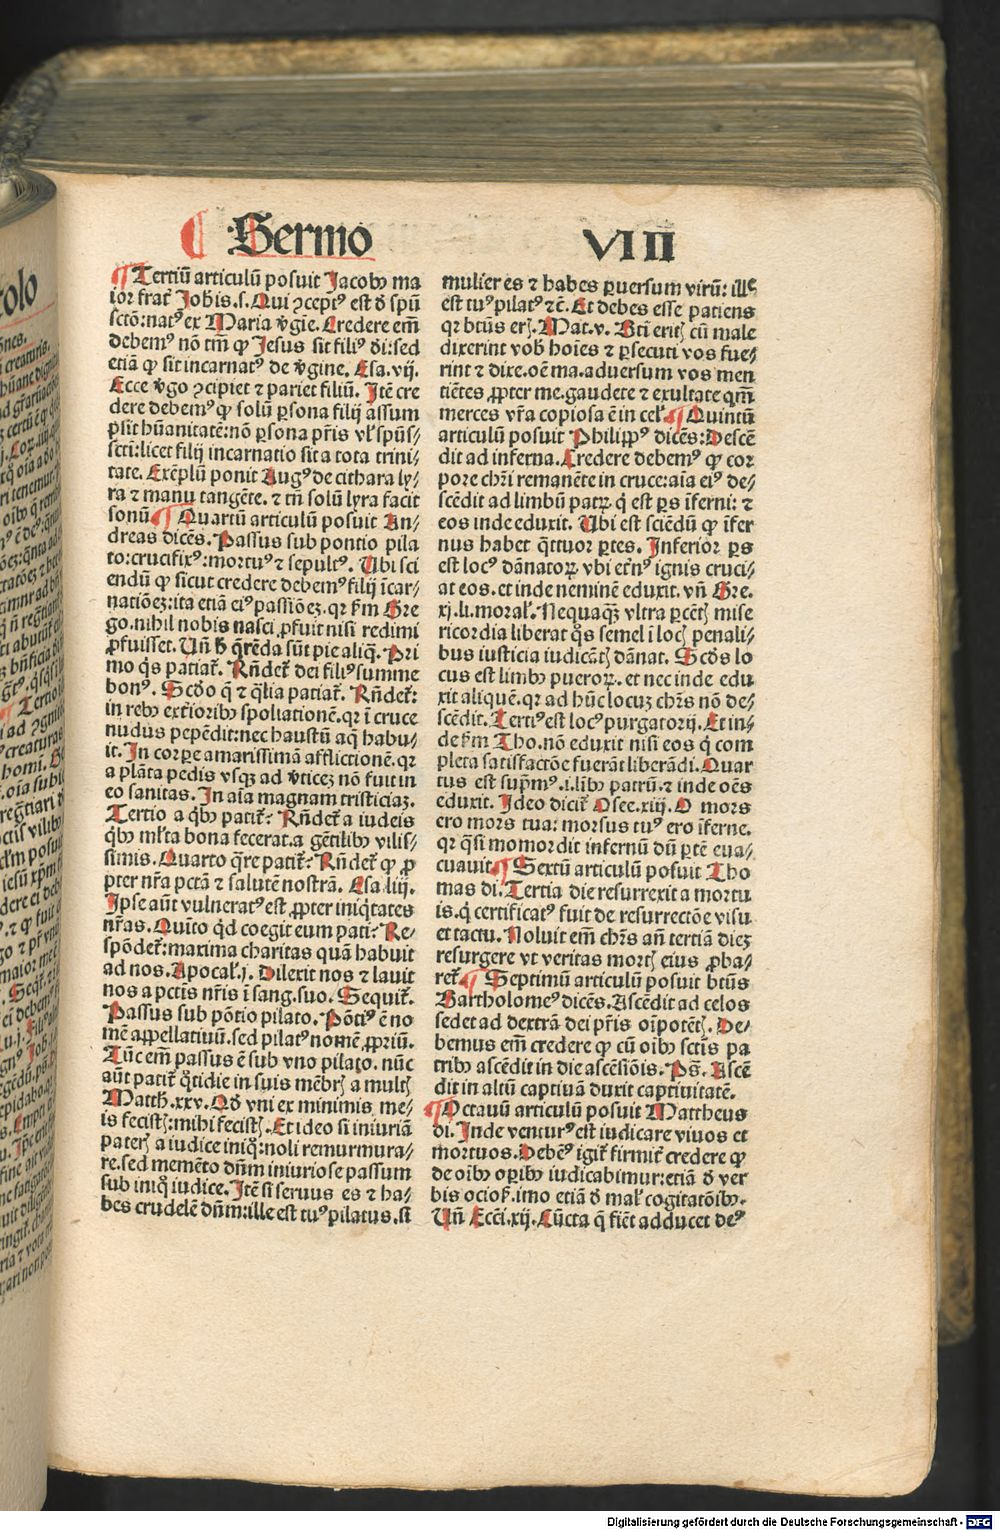 Sermo VIII
¶ Tertiū articulū posuit Jacobꝰ ma
ior frat̄ Joh̄is.s. Qui ꝯceptꝰ est d̄ spū
sctō:natꝰ ex Maria v̄gīe. Credere em̄
debemꝰ nō tm̄ ꝙ Jesus sit filiꝰ d̄i:sed
etiā ꝙ sit incarnatꝰ de v̄gine. Esa.vij.
Ecce v̄go ꝯcipiet ⁊ pariet filiū. Itē cre
dere debemꝰ ꝙ solū ꝑsona filij assum
psit hūanitatē:nō ꝑsona pr̄is vl̓ spūs⸗
scti:licet filij incarnatio sit a tota trini⸗
tate. Exēplū ponit Augꝰ de cithara ly⸗
ra ⁊ manu tangēte. ⁊ tn̄ solū lyra facit
sonū ¶ Quartū articulū posuit An⸗
dreas dicēs. Passus sub pontio pila
to:crucifixꝰ:mortuꝰ ⁊ sepultꝰ. Ubi sci
endū ꝙ sicut credere debemꝰ filij īcar⸗
natiōeꝫ:ita etiā eiꝰ passiōeꝫ.qꝛ ẜm Gre
go.nihil nobis nasci ꝓfuit nisi redimi
ꝓfuisset. Un̄ h̄ q̄rēda sūt pie aliq̄. Pri
mo q̇s patiat̄. Rn̄det̄ dei filiꝰ summe
bonꝰ. Scd̓o q̄ ⁊ q̄lia patiat̄. Rn̄det̄:
in rebꝰ exterioribꝰ spoliationē.qꝛ ī cruce
nudus pepēdit:nec haustū aq̄ habu⸗
it. In corꝑe amarissimā afflictionē.qꝛ
a plāta pedis vsqꝫ ad v̄ticeꝫ nō fuit in
eo sanitas. In aīa magnam tristiciaꝫ.
Tertio a q̇bꝰ patit̄? Rn̄det̄ a iudeis
q̇bꝰ ml̓ta bona fecerat.a gētilibꝰ vilis⸗
simis. Quarto q̄re patit̄? Rn̄det̄ ꝙ ꝓ
pter nr̄a pctā ⁊ salutē nostrā. Esa liij.
Ipse aūt vulneratꝰ est ꝓpter iniq̇tates
nr̄as. Quīto qd̓ coegit eum pati? Re⸗
spōdet̄:maxima charitas quā habuit
ad nos. Apocal̓.j. Dilexit nos ⁊ lauit
nos a pctīs nr̄is ī sang.suo. Sequit̄.
Passus sub pōtio pilato. Pōtiꝰ ē no
mē appellatiuū.sed pilatꝰ nomē ꝓpriū.
Tūc em̄ passus ē sub vno pilato. nūc
aūt patit̄ q̇tidie in suis mēbrꝭ a multꝭ
Matth.xxv. Qd̓ vni ex minimis me⸗
is fecistꝭ:mihi fecistꝭ. Et ideo si iniuriā
paterꝭ a iudice iniq̊:noli remurmura⸗
re.sed memēto dn̄m iniuriose passum
sub iniq̊ iudice. Itē si seruus es ⁊ ha⸗
bes crudelē dn̄m:ille est tuꝰ pilatus. si
mulier es ⁊ habes ꝑuersum virū: ille
est tuꝰ pilatꝰ ⁊c̄. Et debes esse patiens
qꝛ btūs erꝭ. Mat.v. Bti eritꝭ cū male
dixerint vob̓ hoīes ⁊ ꝑsecuti vos fue⸗
rint ⁊ dixe.oē ma.aduersum vos men
tiētes ꝓpter me.gaudete ⁊ exultate qm̄
merces vr̄a copiosa ē in cel̓. ¶ Quintū
articulū posuit Philippꝰ dicēs: Descē
dit ad inferna. Credere debemꝰ ꝙ cor
pore chr̄i remanēte in cruce:aīa eiꝰ de⸗
scēdit ad limbū patꝝ q̄ est ꝑs īferni: ⁊
eos inde eduxit. Ubi est sciēdū ꝙ īfer
nus habet q̄ttuor ꝑtes. Inferior ꝑs
est locꝰ dānatoꝝ vbi etn̄ꝰ ignis cruci⸗
at eos.et inde neminē eduxit. vn̄ Gre.
xj.li.moral̓. Nequaqꝫ vltra ꝑcētꝭ mise
ricordia liberat q̊s semel ī locꝭ penali⸗
bus iusticia iudicātꝭ dānat. Scd̓s lo
cus est limbꝰ pueroꝝ. et nec inde edu
xit aliquē.qꝛ ad hūc locuꝫ chr̄s nō de⸗
scēdit. Tertiꝰ est locꝰ purgatorij. Et in⸗
de ẜm Tho.nō eduxit nisi eos q̇ com
pleta satisfactōe fuerāt liberādi. Quar
tus est sup̄mꝰ.i.libꝰ patrū.⁊ inde oēs
eduxit. Ideo dicit̄ Osee.xiij. O mors
ero mors tua: morsus tuꝰ ero īferne.
qꝛ q̄si momordit infernū dū ꝑtē eua⸗
cuauit ¶ Sextū articulū posuit Tho
mas di. Tertia die resurrexit a mortu
is.q̇ certificatꝰ fuit de resurrectōe visu
et tactu. Noluit em̄ chr̄s añ tertiā dieꝫ
resurgere vt veritas mortꝭ eius ꝓba⸗
ret̄. ¶ Septimū articulū posuit btūs
Bartholomeꝰ dicēs. Ascēdit ad celos
sedet ad dextrā dei pr̄is oīpotētꝭ. De⸗
bemus em̄ credere ꝙ cū oībꝰ sctīs pa
tribꝰ ascēdit in die ascēsiōis. Ps̄. Ascē
dit in altū captiuā duxit captiuitatē.
¶ Octauū articulū posuit Mattheus
di. Inde venturꝰ est iudicare viuos et
mortuos. Debēꝰ igit̄ firmit̄ credere ꝙ
de oībꝰ oꝑibꝰ iudicabimur:etiā d̄ ver
bis ociosꝭ.imo etiā d̄ mal̓ cogitatōibꝰ.
Un̄ Ecci.xij. Cūcta q̄ fiēt adducet deꝰ
Digitalisierung gefördert durch die Deutsche Forschungsgemeinschaft - DFG